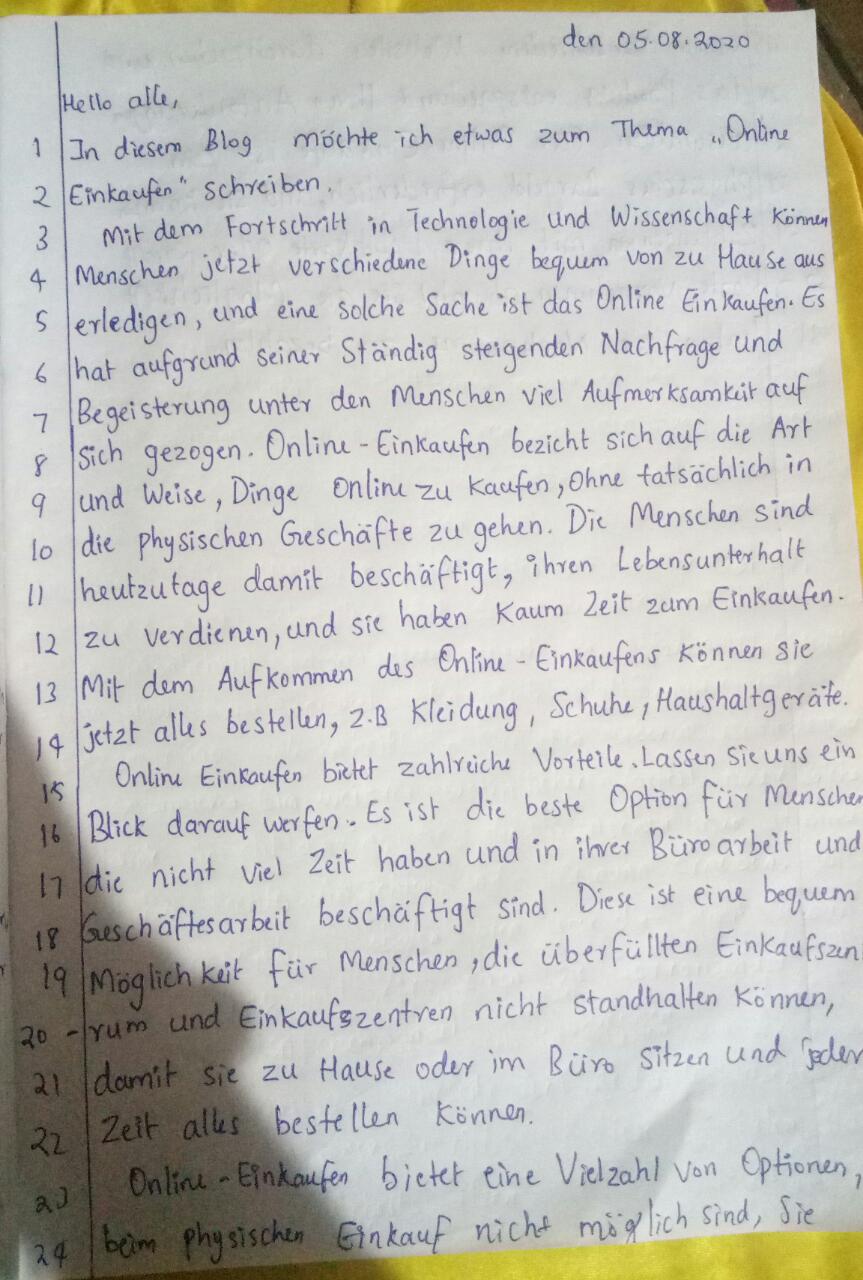 den 05.08.2020
Hello alle,
1 In diesem Blog möchte ich etwas zum Thema „Online
2 Einkaufen" schreiben.
3 Mit dem Fortschritt in Technologie und Wissenschaft können
4 Menschen jetzt verschiedene Dinge bequem von zu Hause aus
5 erledigen, und eine solche Sache ist das Online Einkaufen. Es
6 hat aufgrund seiner Ständig steigenden Nachfrage und
7 Begeisterung unter den Menschen viel Aufmerksamkeit auf
8 sich gezogen. Online-Einkaufen bezicht sich auf die Art
9 und Weise, Dinge Online zu kaufen, ohne tatsächlich in
10 die physischen Geschäfte zu gehen. Die Menschen sind
11 heutzutage damit beschäftigt, ihren Lebensunterhalt
12 zu verdienen, und sie haben kaum Zeit zum Einkaufen.
13 Mit dem Aufkommen des Online-Einkaufens können sie
14 jetzt alles bestellen, z.B Kleidung, Schuhe, Haushaltgeräte.
15 Online Einkaufen bietet zahlreiche Vorteile. Lassen Sie uns ein
16 Blick darauf werfen. Es ist die beste Option für Menschen
17 die nicht viel Zeit haben und in ihrer Büroarbeit und
18 Geschäftesarbeit beschäftigt sind. Diese ist eine bequem
19 Möglichkeit für Menschen, die überfüllten Einkaufszen
20 -rum und Einkaufszentren nicht standhalten können,
21 damit sie zu Hause oder im Büro sitzen und jeder
22 Zeit alles bestellen können.
23 Online-Einkaufen bietet eine Vielzahl von Optionen,
24 beim physischen Einkauf nicht möglich sind, Sie